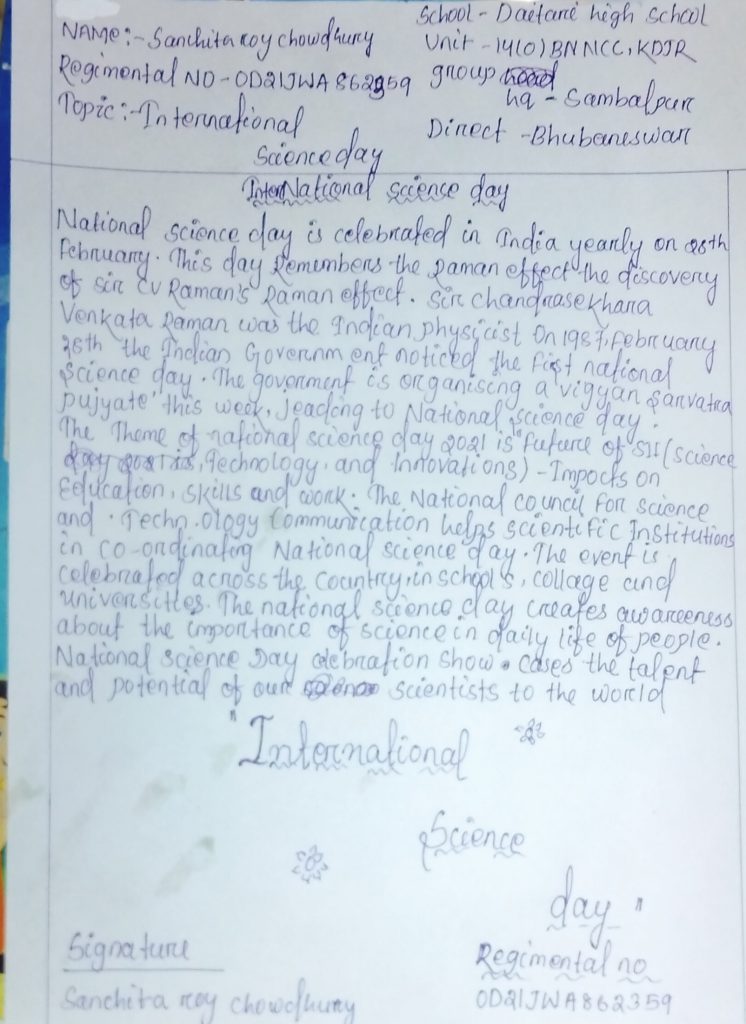 NAME:- Sanchita roy chowdhury
Regimental NO - OD21JWA862359
Topic:- International
Science day
School - Daitari high school
Unit - 14(O) BN NCC, KDJR
group
hq - Sambalpur
Direct - Bhubaneswar
InterNational science day
National science day is celebrated in India yearly on 28th
February. This day Remembers the Raman effect the discovery
of sir CV Raman's Raman effect. Sir chandrasekhara
Venkata Raman was the Indian physicist On 1987, February
28th the Indian Government noticed the first national
Science day. The goverment is organising a vigyan sarvatra
pujyate" this week, leading to National science day.
The Theme of national science day 2021 is "Future of STI (science
, Technology, and Innovations) - Impacts on
Education, skills and work. The National council for science
and . Techn.ology Communication helps scientific Institutions
in co-ordinating National science day. The event is
celebrated across the country, in schools, collage and
universities. The national science day creates awareeness
about the importance of science in daily life of people.
National science Day celebration show cases the talent
and potential of our scientists to the world
"International
Science
day"
Signature
Sanchita roy chowdhury
Regimental no
OD21JWA862359